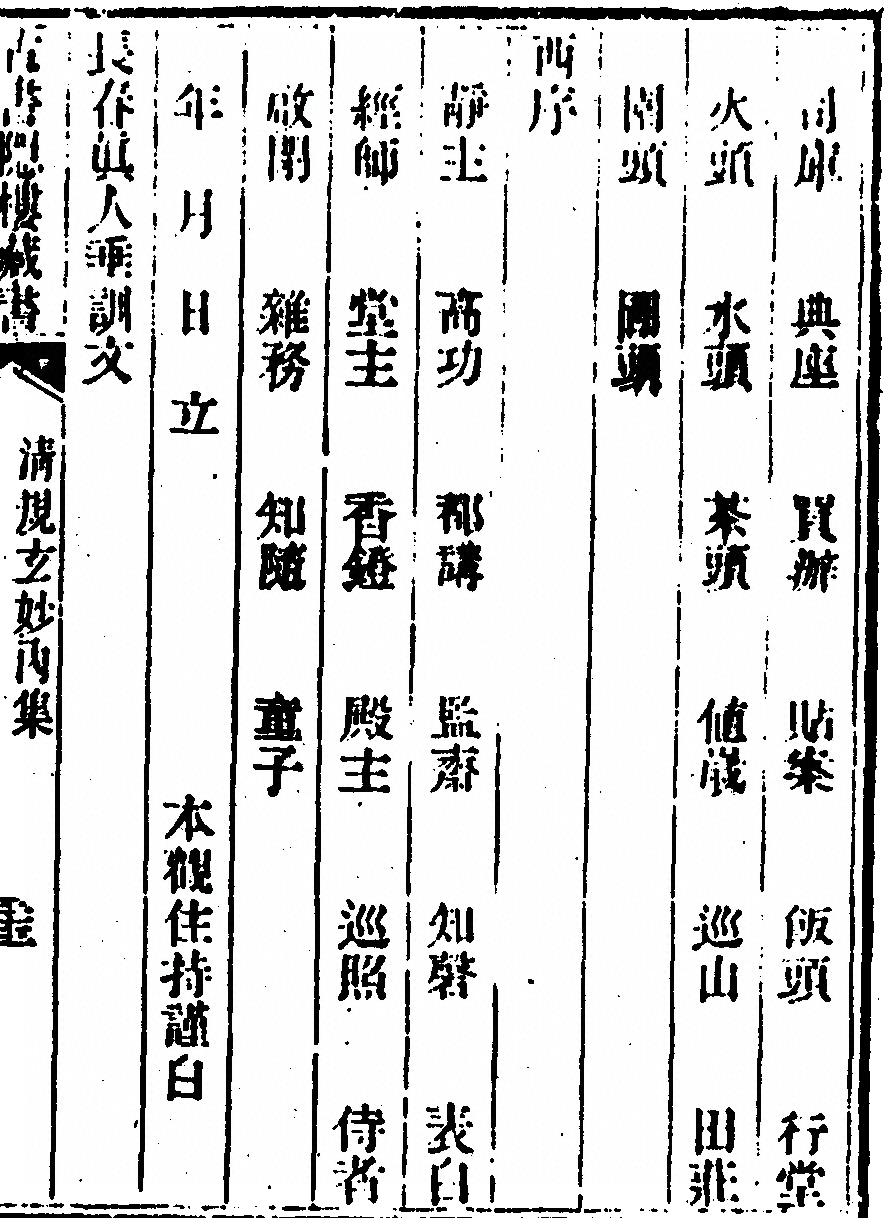 司庫 典座 買辦 貼案 飯頭 行堂
火頭 水頭 茶頭 値歲 巡山 田莊
園頭 圊頭
西序
靜主 高功 都講 監齋 知磬 表白
經師 堂主 香燈 殿主 巡照 侍者
啟閉 雜務 知隨 童子
年 月 日 立 本觀住持謹白
長春眞人垂訓文
清規玄妙內集
藏書